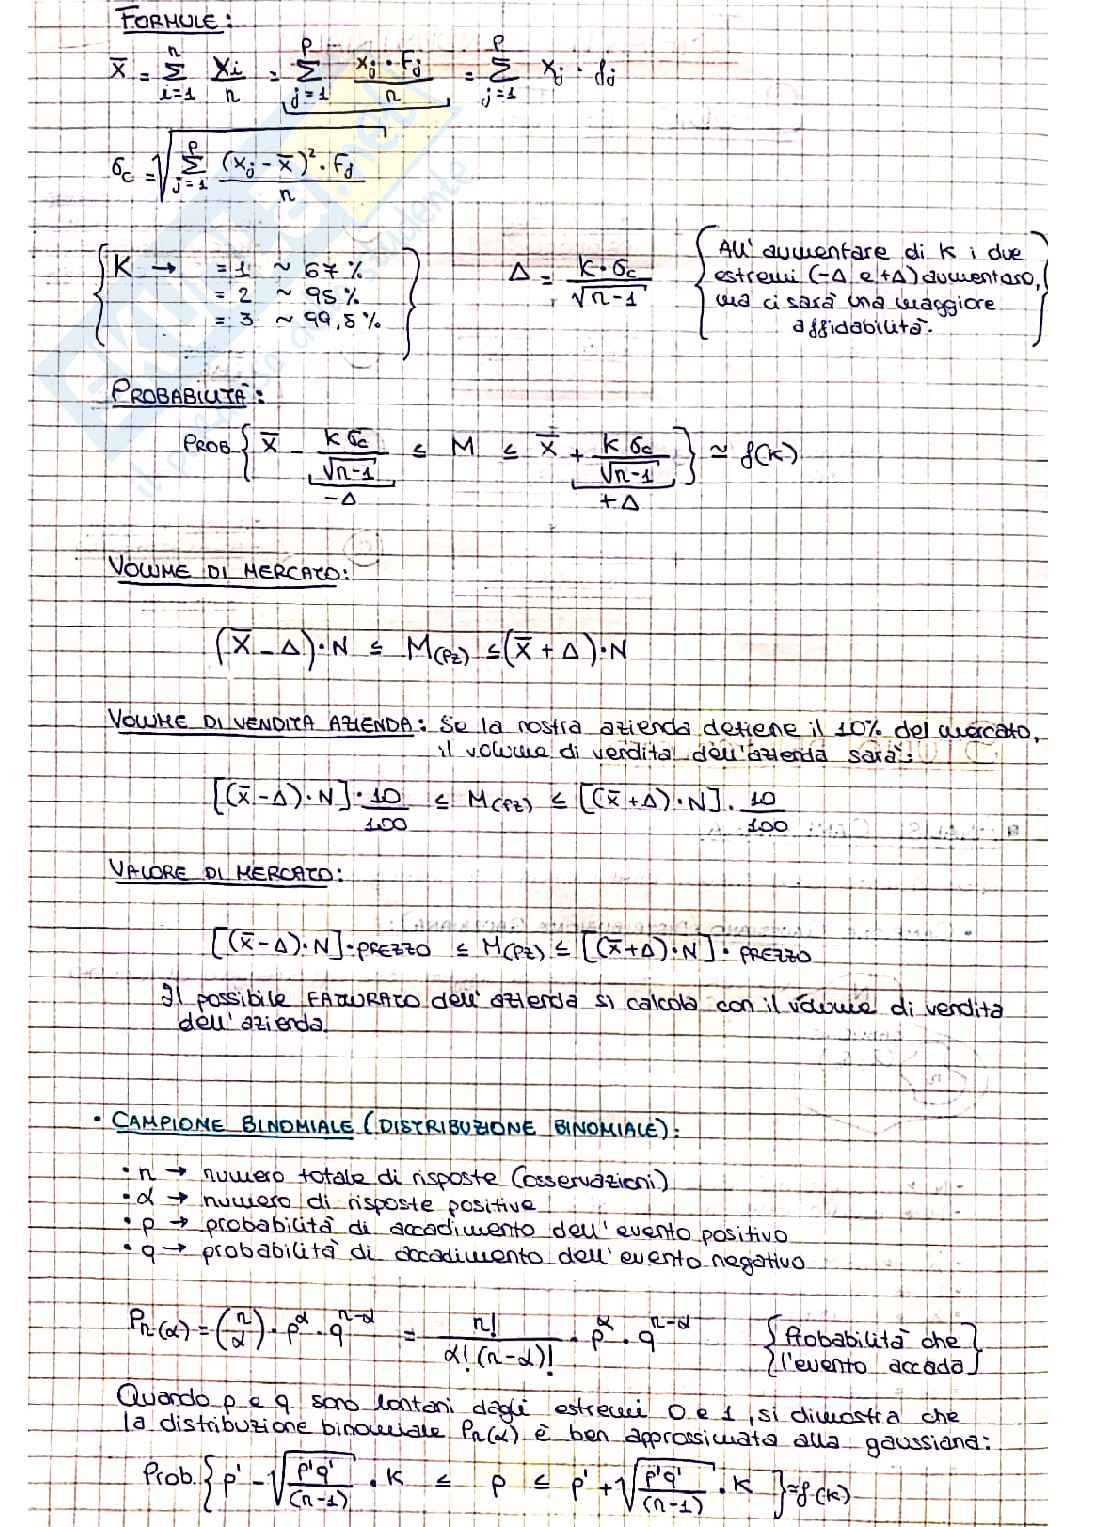 FORMULE:
x̄ = Σ(i=1 → n) xi/n = Σ(j=1 → p) (xj · Fj)/n = Σ(j=1 → p) xj · fj
σc = √( Σ(j=1 → p) (xj - x̄)² · Fj / n )
{ K → = 1 ~ 67 %
= 2 ~ 95 %
= 3 ~ 99,5 % }
Δ = K · σc / √(n-1)
{ All' aumentare di K i due
estremi (-Δ e +Δ) aumentano,
ma ci sarà una maggiore
affidabilità. }
PROBABILITÀ:
PROB { x̄ - K σc / √(n-1) ≤ M ≤ x̄ + K σc / √(n-1) } ≃ f(K)
-Δ +Δ
VOLUME DI MERCATO:
(x̄ - Δ) · N ≤ M(Pz) ≤ (x̄ + Δ) · N
VOLUME DI VENDITA AZIENDA: Se la nostra azienda detiene il 10% del mercato,
il volume di vendita dell'azienda sarà:
[(x̄ - Δ) · N] · 10/100 ≤ M(Pz) ≤ [(x̄ + Δ) · N] · 10/100
VALORE DI MERCATO:
[(x̄ - Δ) · N] · PREZZO ≤ M(Pz) ≤ [(x̄ + Δ) · N] · PREZZO
Il possibile FATTURATO dell' azienda si calcola con il volume di vendita
dell'azienda.
• CAMPIONE BINOMIALE (DISTRIBUZIONE BINOMIALE):
• n → numero totale di risposte (osservazioni)
• α → numero di risposte positive
• p → probabilità di accadimento dell' evento positivo
• q → probabilità di accadimento dell' evento negativo
Pn(α) = (n α) · p^α · q^(n-α) = n! / α!(n-α)! · p^α · q^(n-α) { Probabilità che
l'evento accada }
Quando p e q sono lontani dagli estremi 0 e 1, si dimostra che
la distribuzione binomiale Pn(α) è ben approssimata alla gaussiana:
Prob. { p' - √( p'q' / (n-1) ) · K ≤ p ≤ p' + √( p'q' / (n-1) ) · K } ≃ f(K)